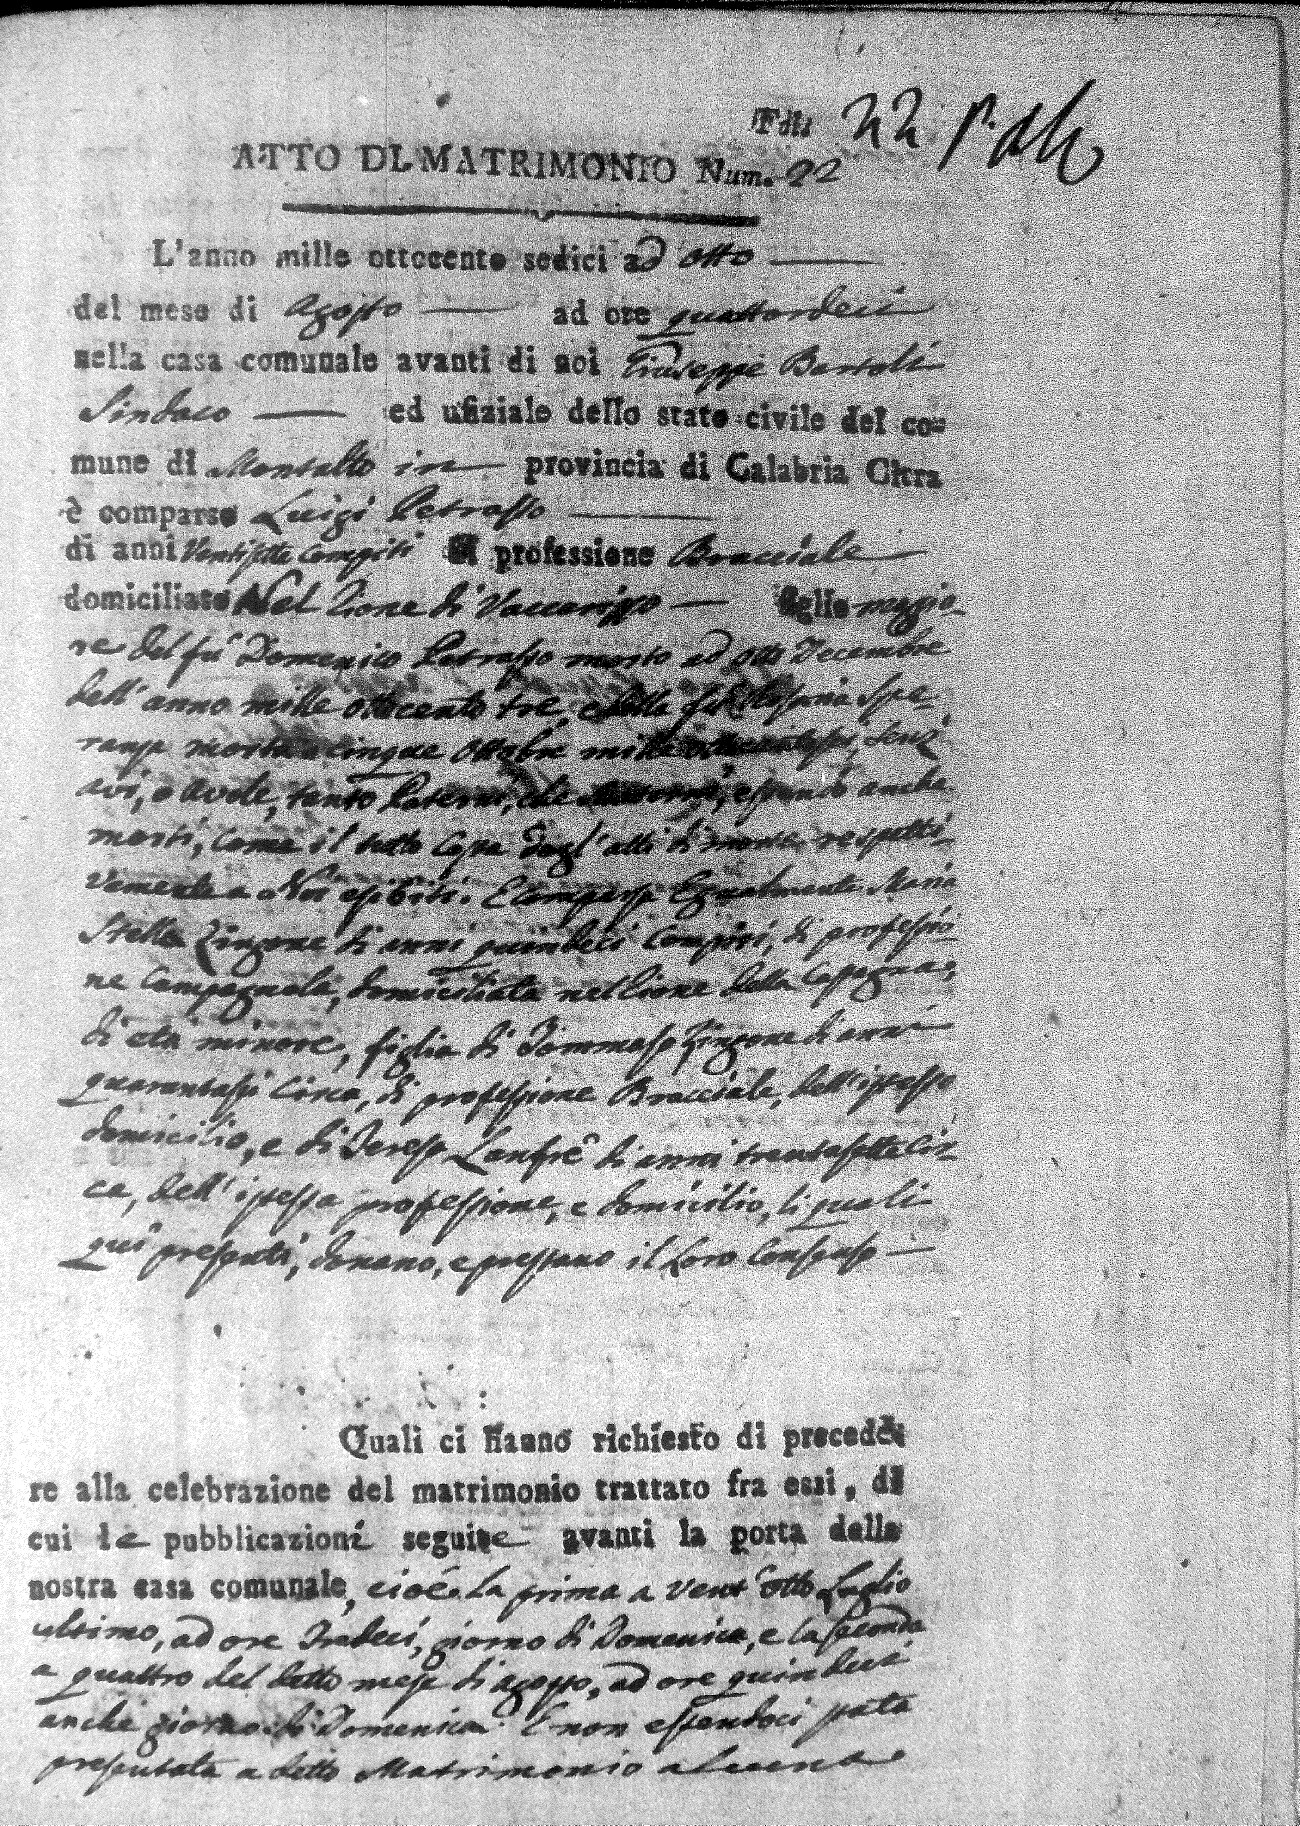 Fdl. 22
ATTO DI MATRIMONIO Num. 22
L'anno mille ottocento sedici ad otto
del mese di Agosto ad ore quattordeci
nella casa comunale avanti di noi Giuseppe Bartoli
Sindaco ed ufiziale dello stato civile del co-
mune di Montalto in provincia di Calabria Citra
è comparso Luigi Petrasso
di anni Ventisette compiti di professione Bracciale
domiciliato Nel Rione di Vaccarizzo figlio maggio-
re del fu Domenico Petrasso morto ad otto Decembre
dell'anno mille ottocento tre, e della fu Spe-
ranza morta a cinque Ottobre mille senz'
avi, o avole, tanto Paterni, che Materni, essendo anche
morti, come il tutto costa dagl'atti di morte respetti-
vamente a Noi esibiti. E comparsa Egualmente Maria
Stella Zingone di anni quindeci compiti, di professio-
ne Campagnola, domiciliata nel Rione della
di età minore, figlia di Tommaso Zingone di anni
quarantasei circa, di professione Bracciale, dell'istesso
domicilio, e di Teresa Lanfre di anni trentasette cir-
ca, dell'istessa professione, e domicilio, li quali
qui presenti, donano, e prestano il loro Consenso
Quali ci hanno richiesto di procede-
re alla celebrazione del matrimonio trattato fra essi, di
cui le pubblicazioni seguite avanti la porta della
nostra casa comunale, cioè. La prima a vent'otto Luglio
ultimo, ad ore Tredeci, giorno di Domenica, e la seconda
a quattro del detto mese di agosto, ad ore quindeci
anche giorno di Domenica. E non essendoci stata
presentata a detto Matrimonio alcuna